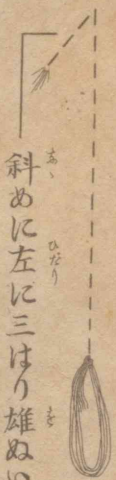 斜めに左に三はり雄ぬい